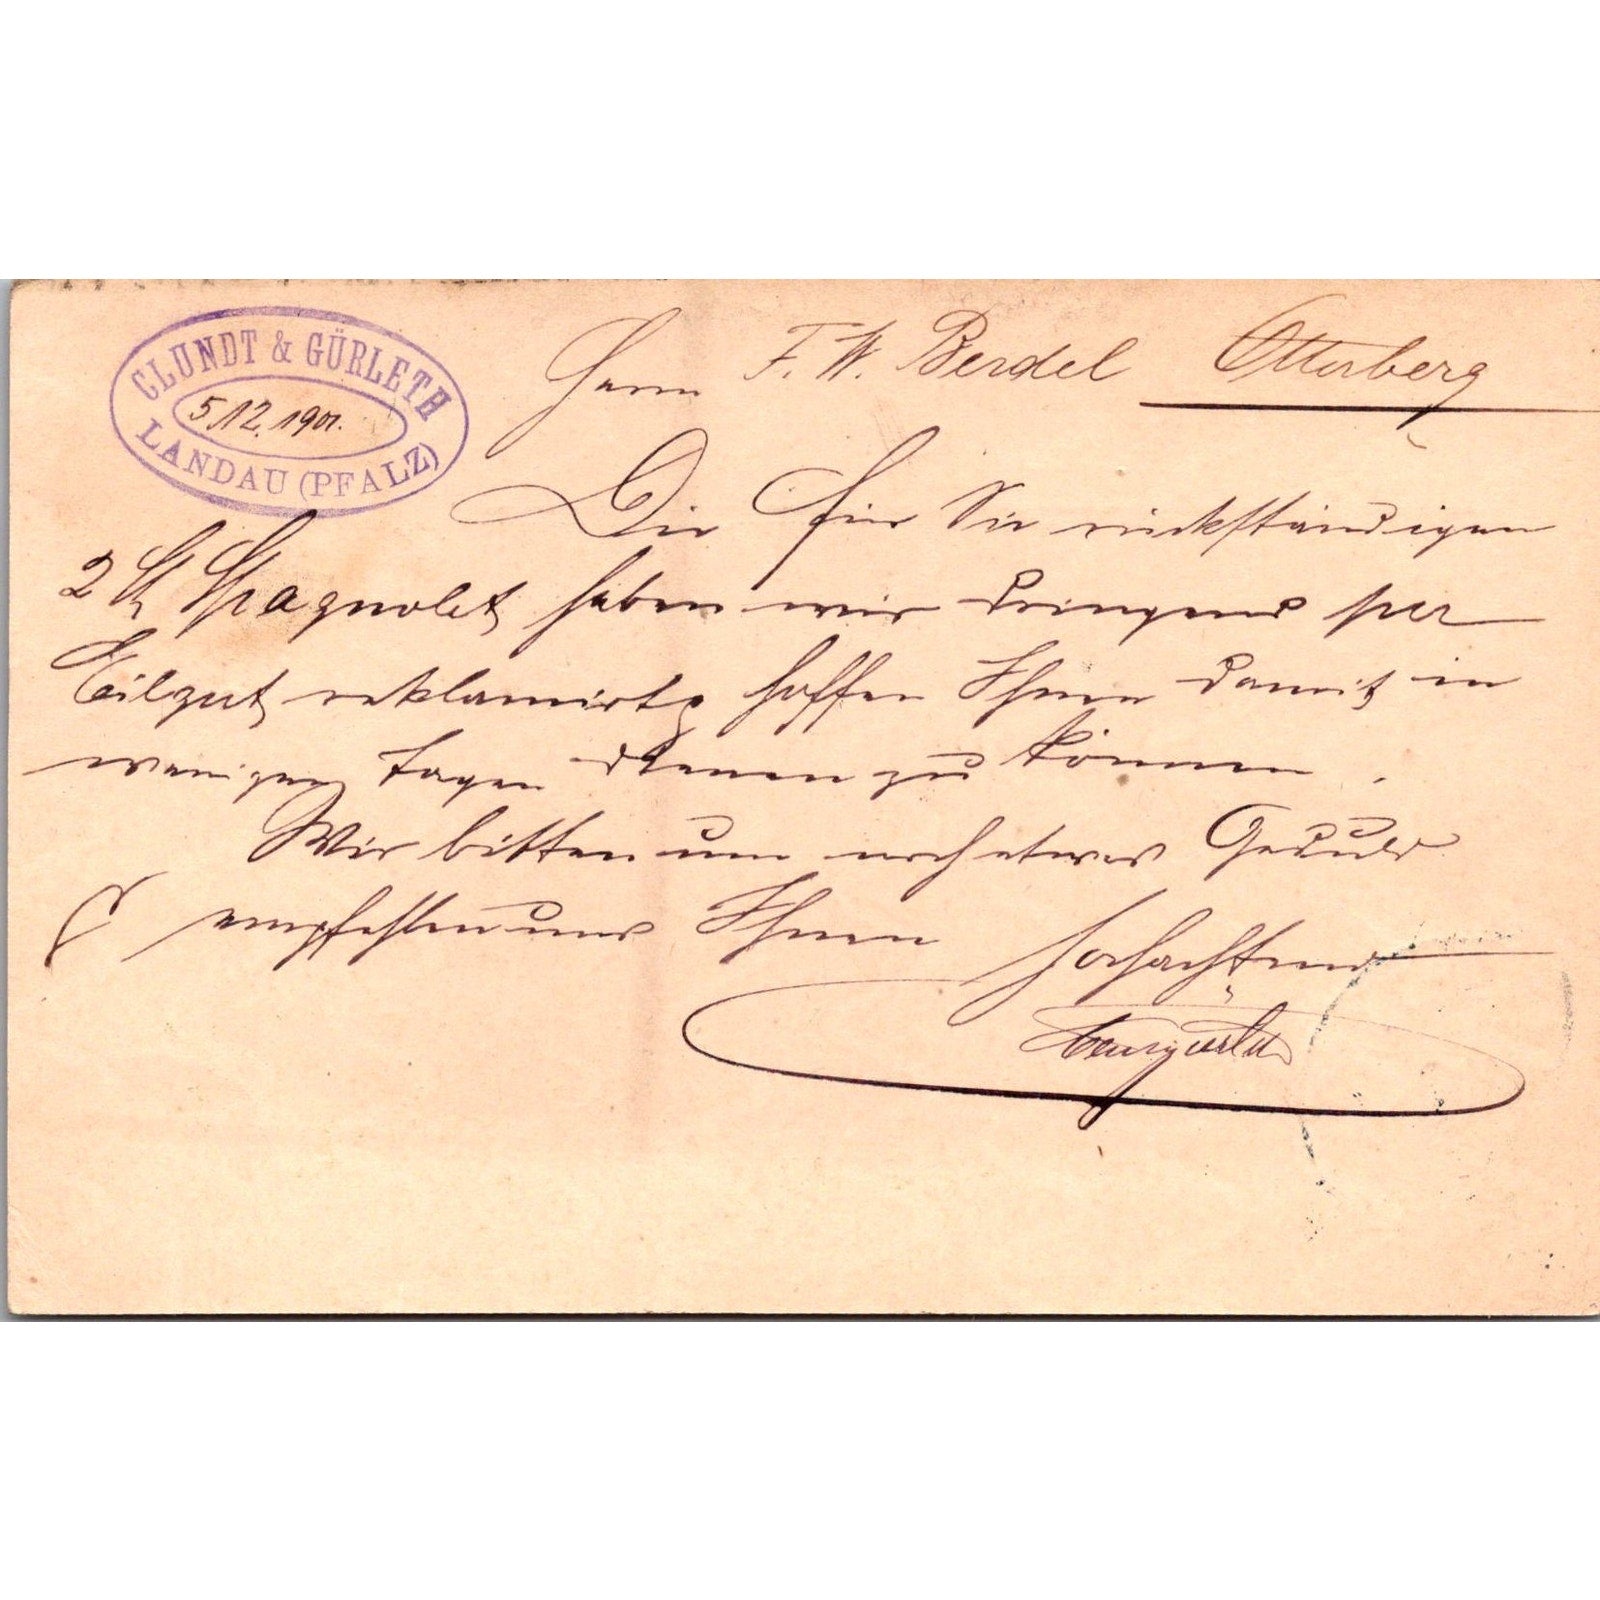 CLUNDT & GÜRLETH
5 12. 1901.
LANDAU (PFALZ)
Herrn F. W. Berdel Otterberg
Die für Sie rückständigen
2 St. Spagnolet haben wir dringend per
Eilgut reklamirt, hoffen Ihnen damit in
wenigen Tagen dienen zu können.
Wir bitten um noch etwas Geduld
& empfehlen uns Ihnen Hochachtend